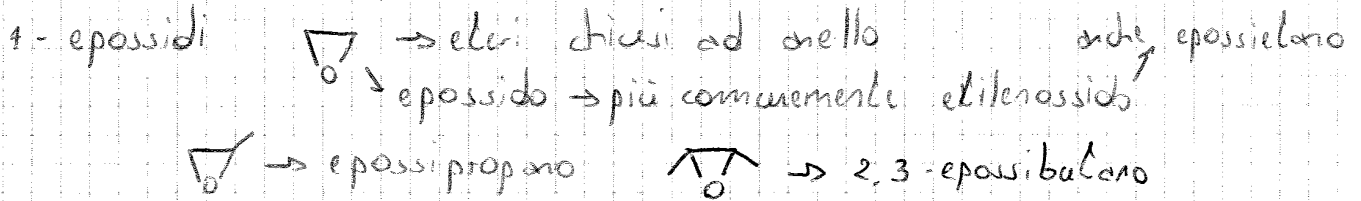 1 - epossidi → eteri chiusi ad anello anche epossietano
O ↘ epossido → più comunemente etilenossido ↗
→ epossipropano → 2,3-epossibutano
O O